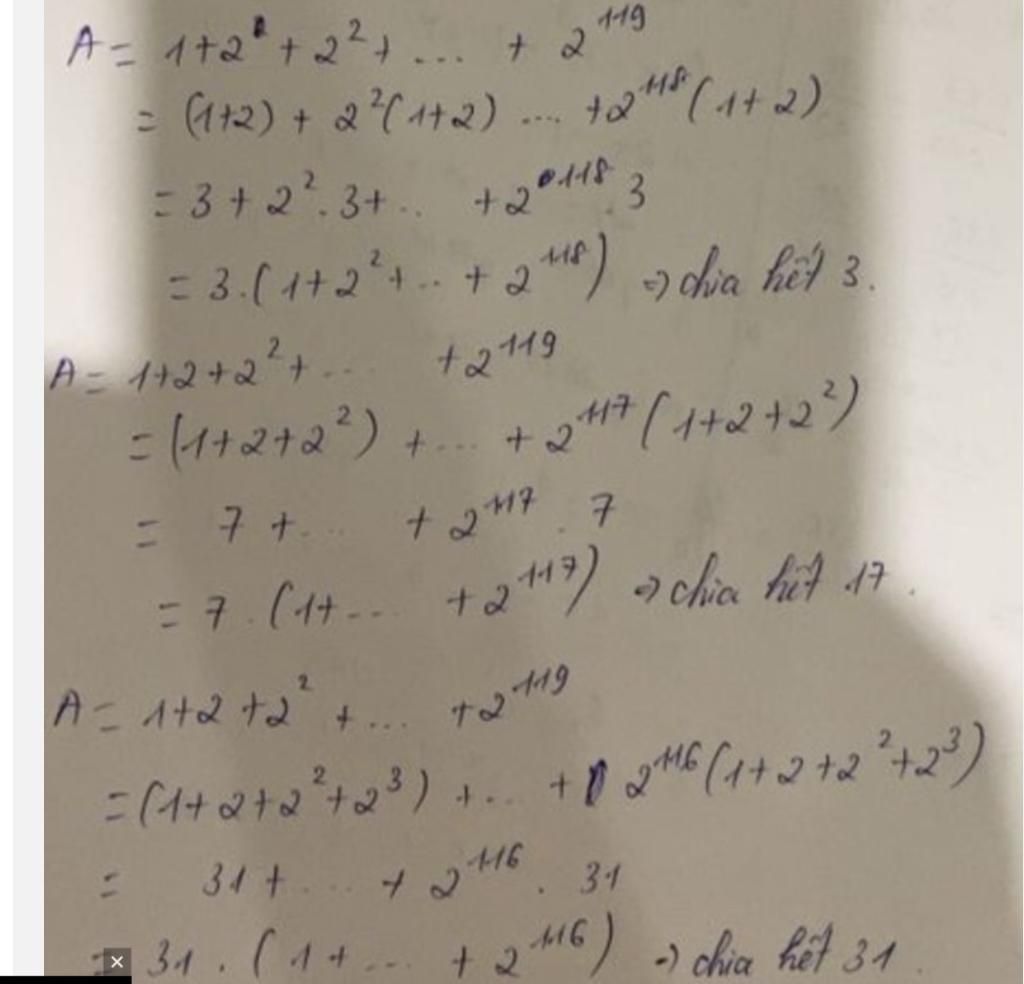 A = 1+2¹ + 2² + ... + 2¹¹⁹
= (1+2) + 2²(1+2) ... +2¹¹⁸(1+2)
= 3 + 2².3+.. +2¹¹⁸.3
= 3.(1+2²+..+2¹¹⁸) => chia hết 3.
A = 1+2+2²+... +2¹¹⁹
= (1+2+2²) +... + 2¹¹⁷(1+2+2²)
= 7 +... + 2¹¹⁷.7
= 7.(1+... +2¹¹⁷) => chia hết 17.
A = 1+2+2² +... +2¹¹⁹
= (1+2+2²+2³) +... + 2¹¹⁶(1+2+2²+2³)
= 31 +... + 2¹¹⁶.31
= 31.(1+... + 2¹¹⁶) => chia hết 31.